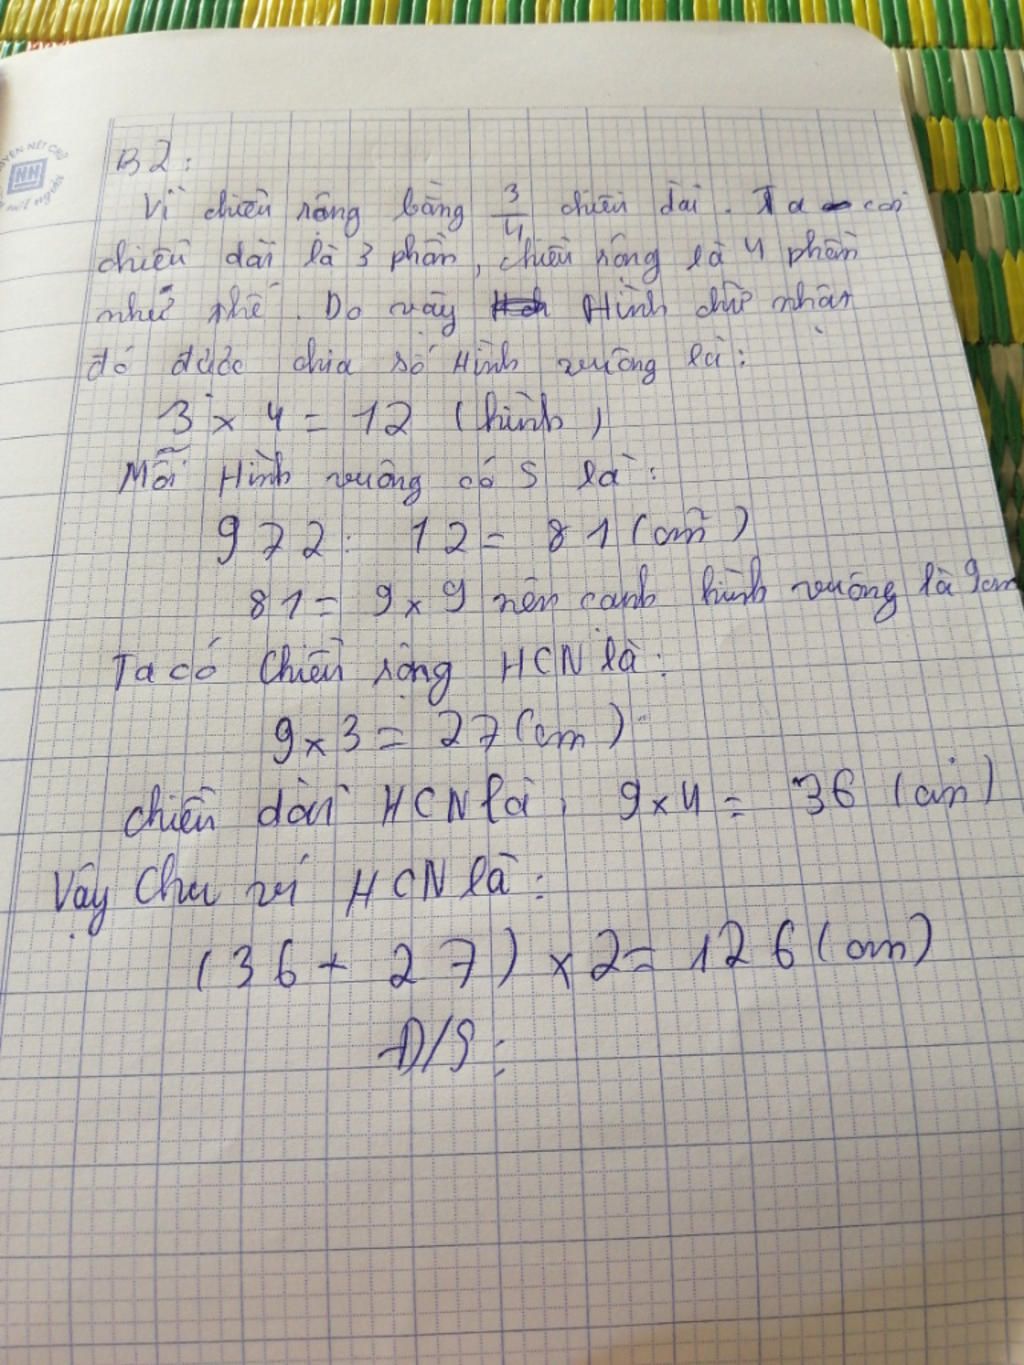 B2:
Vì chiều rộng bằng 3/4 chiều dài. Ta coi
chiều dài là 3 phần, chiều rộng là 4 phần
như thế. Do vậy Hình chữ nhật
đó được chia số Hình vuông là:
3 x 4 = 12 (hình)
Mỗi Hình vuông có S là:
972 : 12 = 81 (cm²)
81 = 9 x 9 nên cạnh hình vuông là 9cm
Ta có Chiều rộng HCN là:
9 x 3 = 27 (cm)
Chiều dài HCN là: 9 x 4 = 36 (cm)
Vậy Chu vi HCN là:
(36 + 27) x 2 = 126 (cm)
Đ/S:
NH